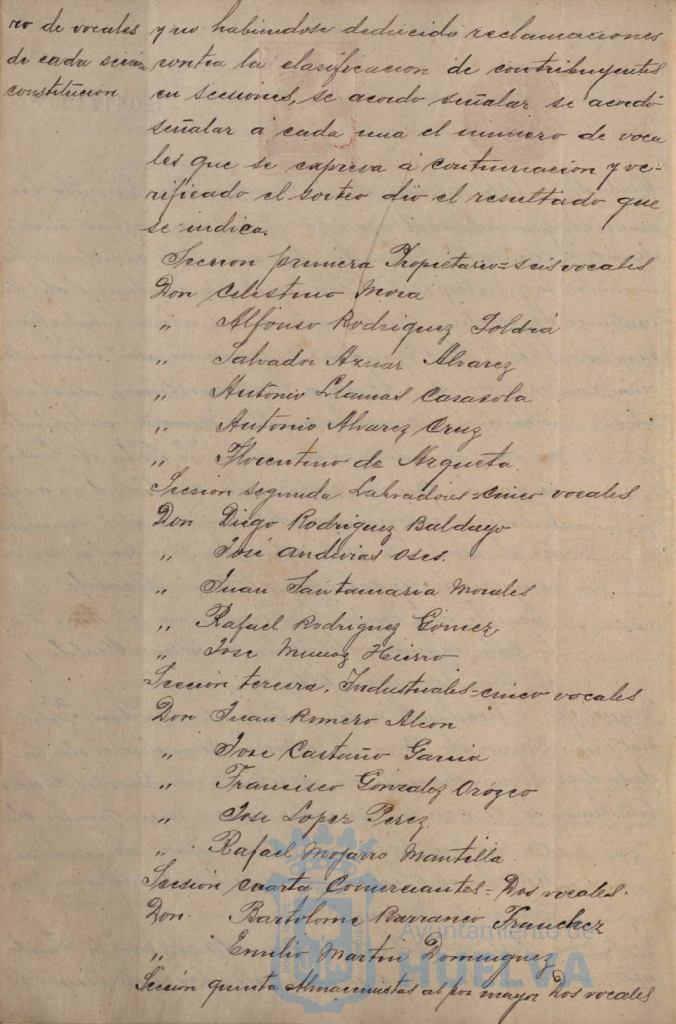 ro de vocales
de cada sección
constitucion
y no habiendose deducido reclamaciones
contra la clasificacion de contribuyentes
en secciones, se acordo señalar se acordó
señalar á cada una el número de voca
les que se expresa á continuacion y ve-
rificado el sorteo dió el resultado que
se indica.
Seccion primera Propietario = seis vocales
Don Celestino Mora
" Alfonso Rodriguez Toldrá
" Salvador Aznar Alvarez
" Antonio Llamas Casasola
" Antonio Alvarez Cruz
" Florentino de Azqueta.
Seccion segunda Labradores = cinco vocales
Don Diego Rodriguez Baldayo
" José Andivias Oses.
" Juan Santamaria Morales
" Rafael Rodriguez Gómez
" Jose Muñoz Hierro
Sección tercera. Industriales = cinco vocales
Don Juan Romero Alcon
" Jose Castaño Garcia
" Francisco Gonzalez Orozco
" Jose Lopez Perez
" Rafael Mojarro Mantilla
Seccion cuarta Comerciantes = Dos vocales.
Don Bartolome Barranco
Ayuntamiento de
" Emilio Martin Dominguez
HUELVA
Sección quinta Almacenistas al por mayor Dos vocales